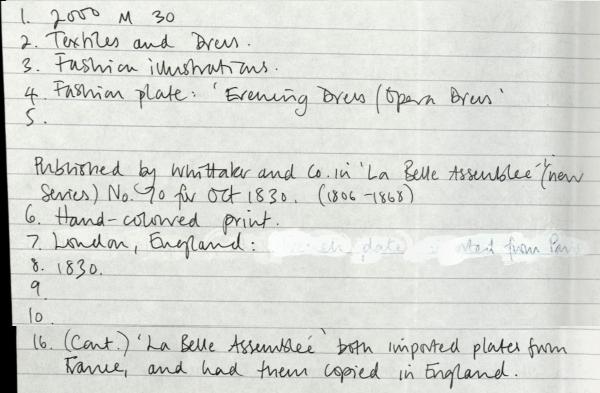 1. 2000 M 30
2. Textiles and Dress.
3. Fashion illustrations.
4. Fashion plate: 'Evening Dress/Opera Dress'
5.
Published by Whittaker and Co. in 'La Belle Assemblée' (new
series) No. 70 for Oct 1830. (1806-1868)
6. Hand-coloured print.
7. London, England: from
8. 1830.
9
10.
16. (Cont.) 'La Belle Assemblée' both imported plates from
France, and had them copied in England.